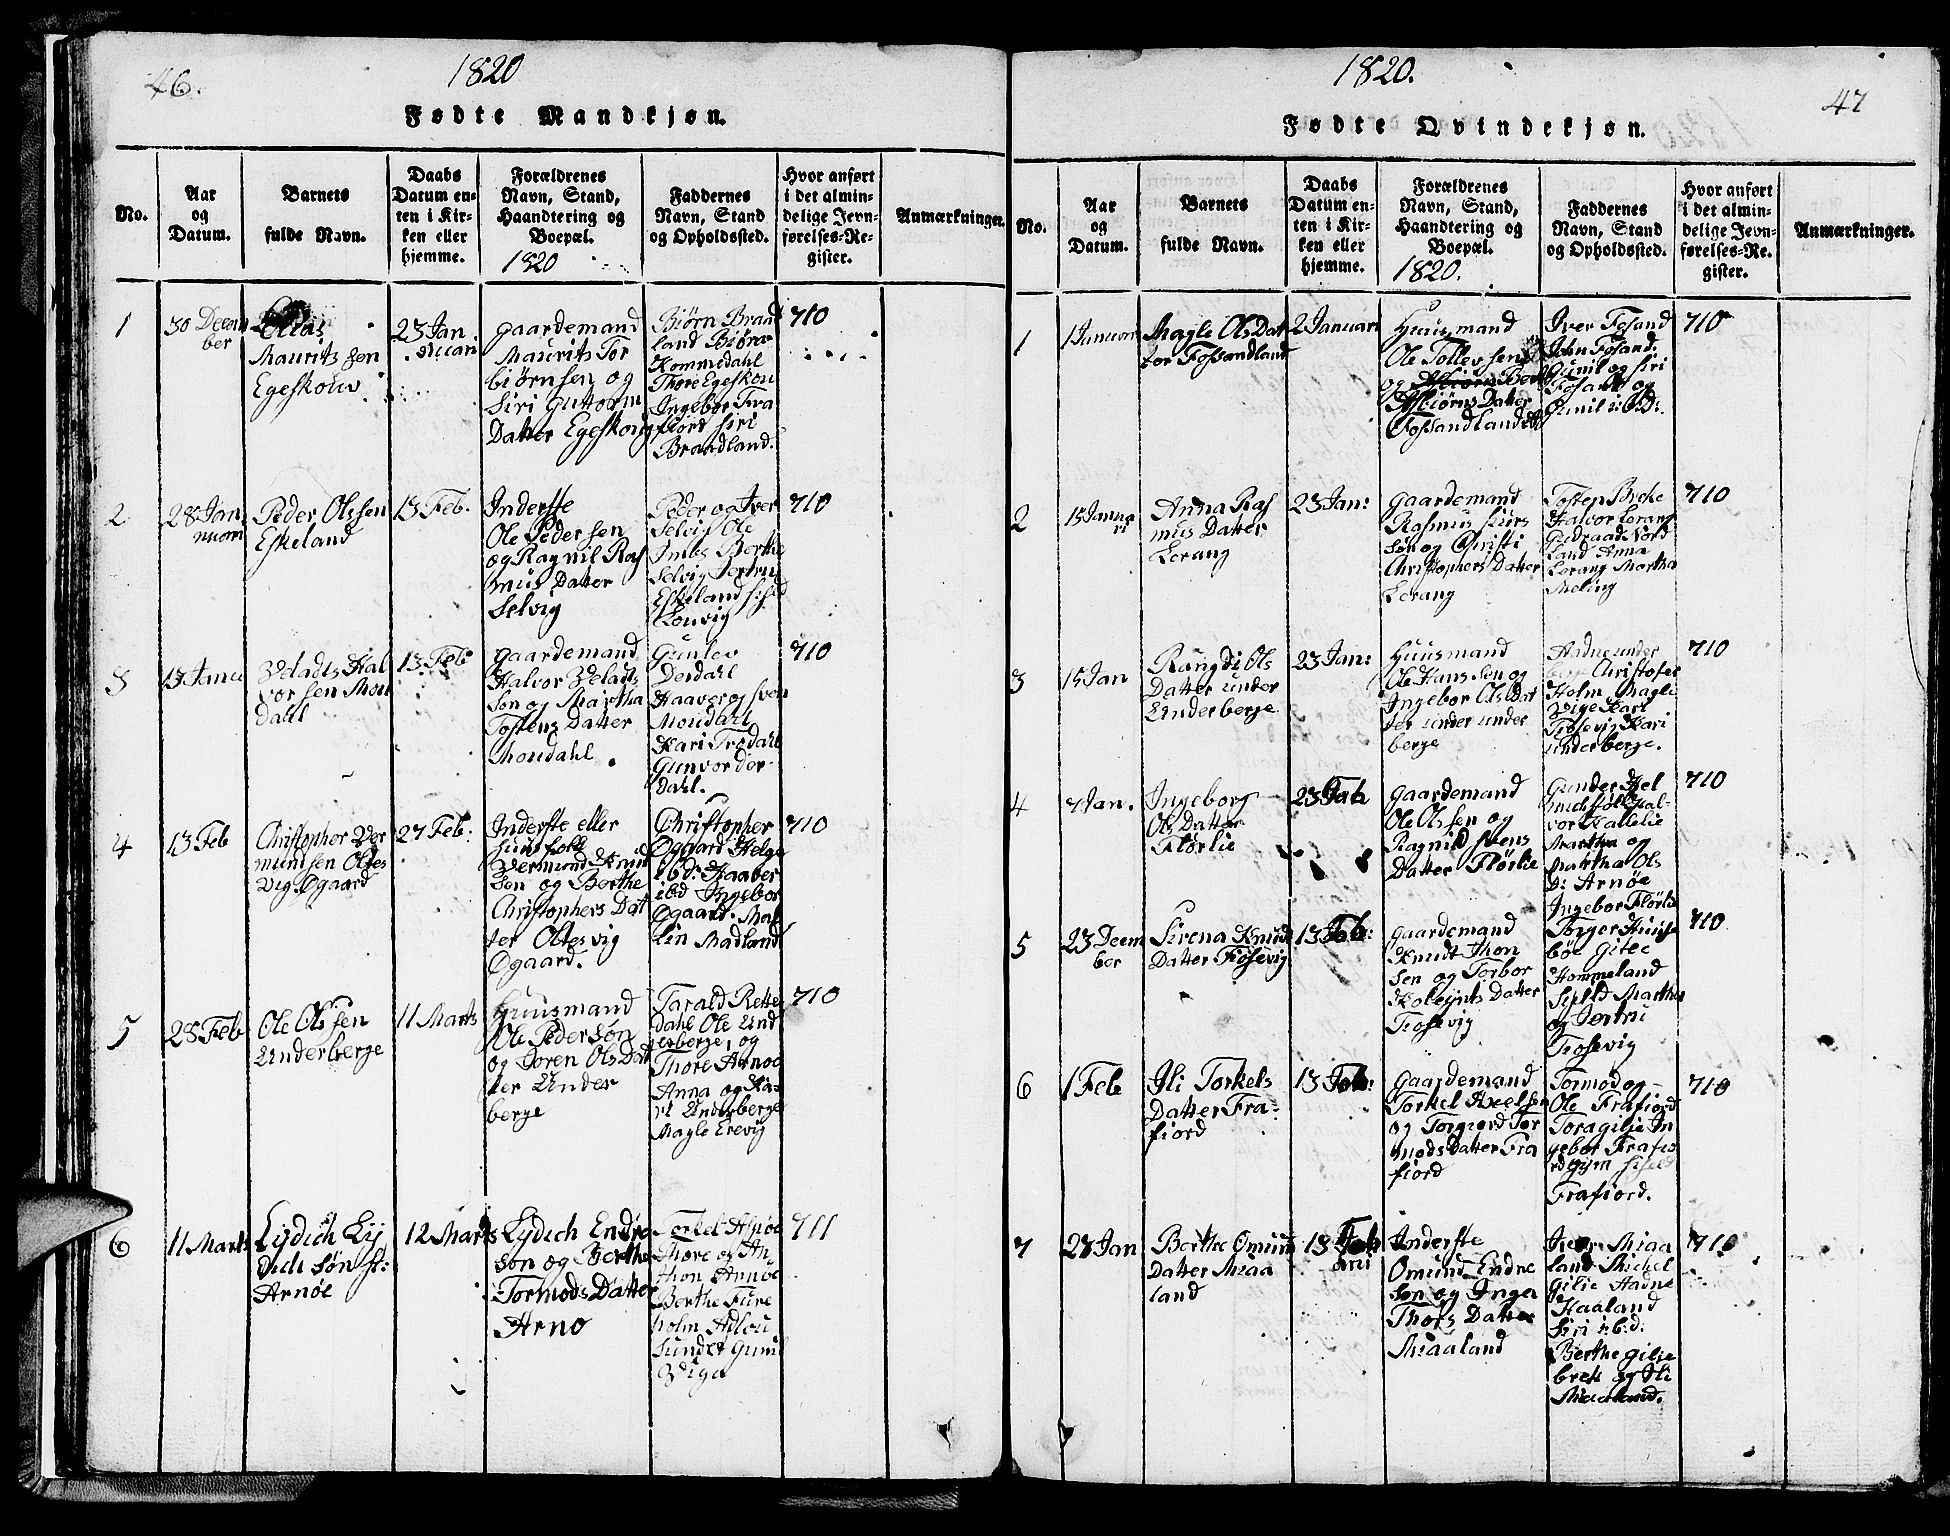 46.
1820
Fødte Mandkjøn.
No.
Aar
og
Datum.
Barnets
fulde Navn.
Daabs
Datum en-
ten i Kir-
ken eller
hjemme.
Forældrenes
Navn, Stand,
Haandtering og
Boepæl.
1820
Faddernes
Navn, Stand
og Opholdssted.
Hvor anført
i det almin-
delige Jevn-
førelses-Re-
gister.
Anmærkninger.
1
30 Decem
ber
Elias
Maurits sen
Egeskouv
23 Jan
nuari
gaardemand
Maurits Tor
biørnsen og
Siri Guttorm
Datter Egeskouv
Biørn Braad
land Biørn
Kommedahl
Thore Egeskou
Ingebor Fra
fiord Siri
Brandland.
710
2
28 Jan
nuari
Peder Olssen
Eskeland
13 Feb.
Inderste
Ole Pedersen
og Ragnil Ras
mus Datter
Selvig
Peder og Iver
Selvig Ole
Berthe
Selvig
Eskeland
710
3
13 Janu
Hal
vorsen Mou
dahl
13 Feb
gaardemand
Halvor
Søn og Martha
Tostens Datter
Moudahl
Gunlev
Derdahl
Haaver og Sven
Moudahl
Kari Frødahl
Gunvor Der-
dahl.
710
4
13 Feb
Christopher Ver
mundsen Oltes
vig Øgaard
27 Feb.
Inderste eller
Huusfolk
Vermund Knud
Søn og Berthe
Christophers Dat
ter Oltesvig
Øgaard.
Christopher
Øgaard Helge
ibd: Haaver
ibd Ingebor
Øgaard. Mal
lin Madland
710
5
28 Feb
Ole Olssen
Underberge
11 Marts
Huusmand
Ole Pedersøn
og Soren Ols Dat
ter Under
berge
Tarald Rette
dahl Ole Und
erberge, og
Thore Arnøe
Anna og Ka-
ri Underberge
Magle Erevig
710
6
11 Marts
Lydich Ly
dich søn St:
Arnøe
12 Marts
Lydich Endre
søn og Berthe
Tormods Datter
Arnø
Torkel Arnøe
Thore og An
thon Arnøe
Berthe Fure
holm
Sundet Gunil
711
1820.
47
Fødte Qvindekjøn.
No.
Aar
og
Datum.
Barnets
fulde Navn.
Daabs
Datum en-
ten i Kir-
ken eller
hjemme.
Forældrenes
Navn, Stand,
Haandtering og
Boepæl.
1820.
Faddernes
Navn, Stand
og Opholdssted.
Hvor anført
i det almin-
delige Jevn-
førelses-Re-
gister.
Anmærkninger.
1
1 Januari
Magle Ols Dat
ter Fossandland
2 Januari
Huusmand
Ole Tollevsen
og
Asbiørns Datter
Fossandland
Iver Fosand
John Fosand.
Gunil og Siri
Fosand og
Gunil i: bd:
710
2
15 Janua
ri
Anna Ras
mus Datter
Lerang
23 Jan:
gaardemand
Rasmus
søn og Christi
Christophers Datter
Lerang
Tosten Breke
Halvor Lerang
Nord
land Anna
Lerang Martha
Meling
710
3
15 Jan
Rangdi Ols
Datter under
Underberge
23 Jan:
Huusmand
Ole Hanssen og
Ingebor Ols Dat
ter under under
berge
Aadne under
berg Christofer
Holm Magle
Vige Kari
Frøsevig Kari
underberge.
710
4
7 Jan.
Ingeborg
Ols Datter
Flørlie
23 Feb
gaardemand
Ole Olssen og
Ragnild Svens
Datter Flørlie
Gunder Hel
Hal-
vor Kallelie
Martha og
Martha Ols
D: Arnøe
Ingebor Flørlie
710
5
23 Decem
ber
Sirena Knuds
Datter Fosevig
13 Feb:
gaardemand
Knudt Thor
sen og Torbor
Datter
Frosevig
Torger Huuse
bøe Gitle
Hommeland
Martha
og Jertru
Frosevig
710
6
1 Feb
Ili Torkels
Datter Fra-
fiord
13 Feb:
Gaardemand
Torkel Axelsen
og Torgierd Tor
mods Datter Fra
fiord
Tormod og
Ole Frafiord
Tora gilje In
gebor Frafio
rd
Frafiord.
710
7
27 Jan
Berthe Omund
Datter Miaa
land
13 Feb
Inderste
Omund Endre
søn og Inger
Thors Datter
Miaaland
Iver Miaa
land Michel
Gilie Aadne
Haaland
Siri i:b:d:
Berthe gilje
brek og Ili
Miaaland.
710